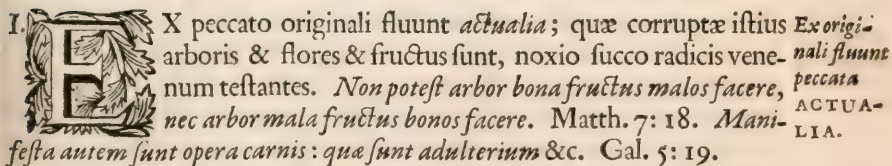 I. EX peccato originali fluunt actualia; quæ corruptæ istius
arboris & flores & fructus sunt, noxio succo radicis vene-
num testantes. Non potest arbor bona fructus malos facere,
nec arbor mala fructus bonos facere. Matth. 7: 18. Mani-
festa autem sunt opera carnis: quæ sunt adulterium &c. Gal. 5: 19.
Ex origi-
nali fluunt
peccata
ACTUA-
LIA.